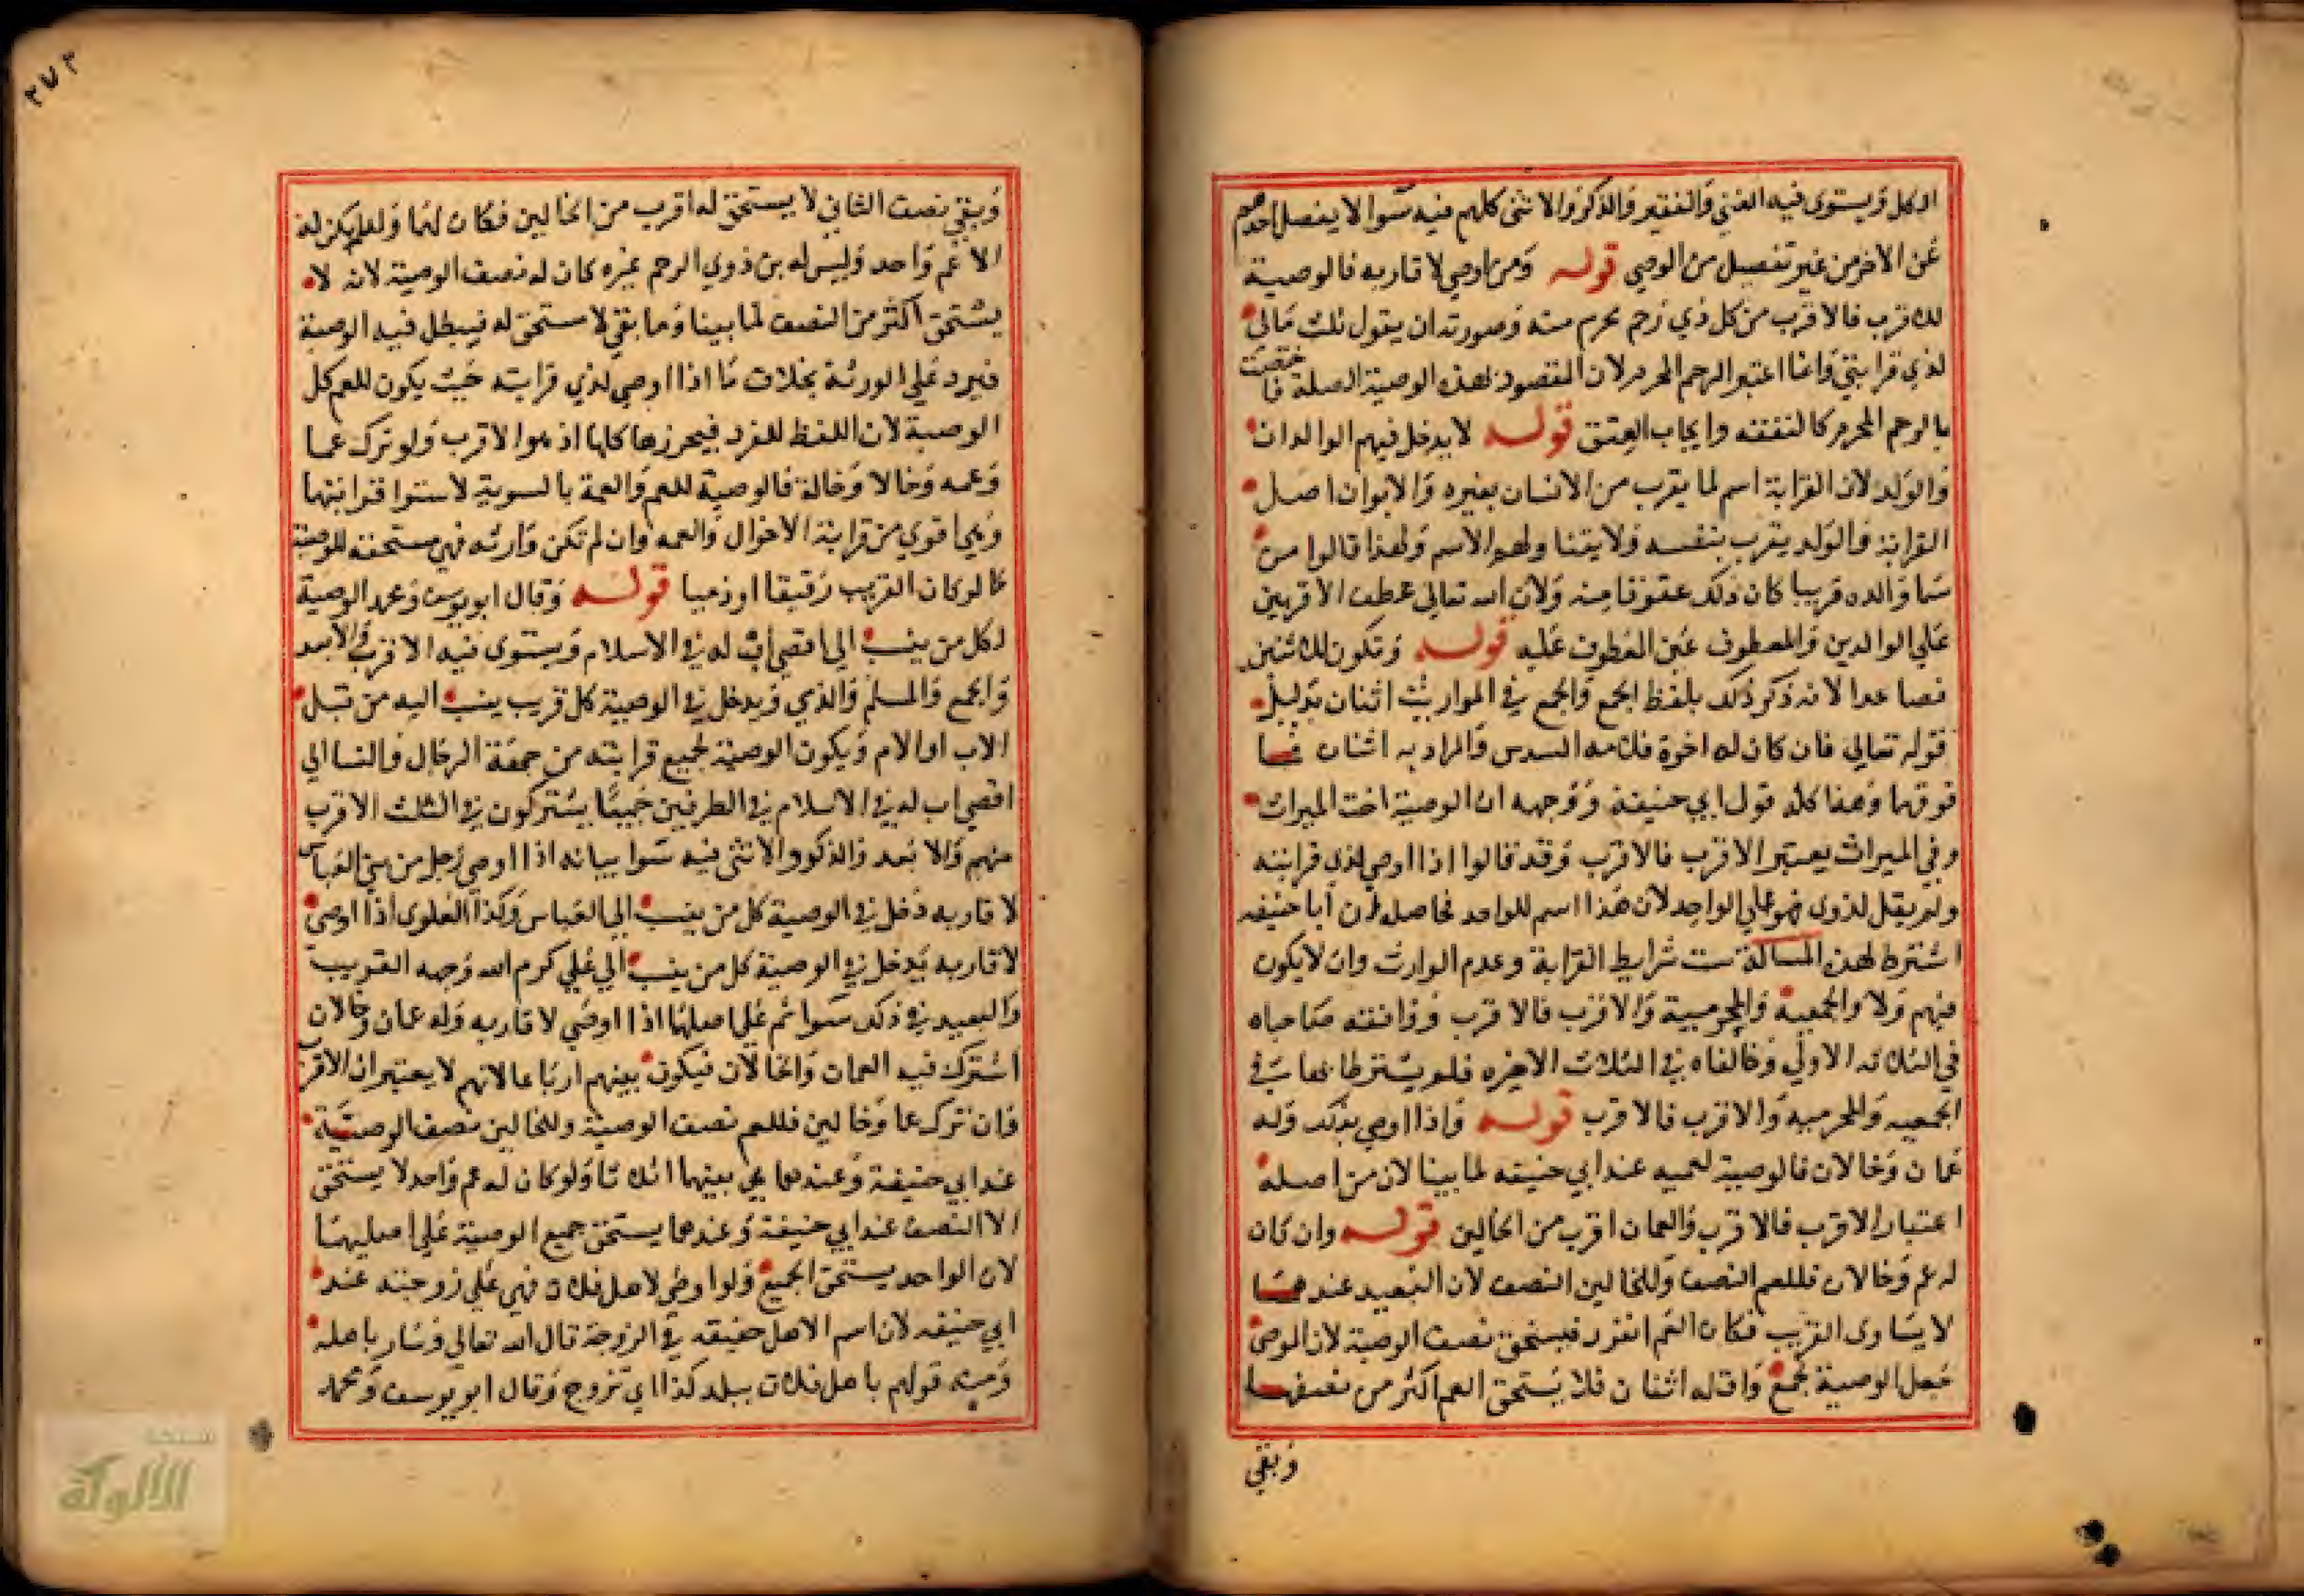 الاكل ويستوى فيه الغني والفقير والذكر والانثى كلهم فيه سوا لا يفضل احدهم
عن الاخر من غير تفضيل من الموصي قوله ومن اوصى لاقاربه فالوصية
للاقرب فالاقرب من كل ذي رحم محرم منه وصورته ان يقول ثلث مالي
لذي قرابتي وانما اعتبر الرحم المحرم لان المقصود بهذه الوصية الصلة فاختصت
بالرحم المحرم كالنفقة وايجاب العتق قوله لا يدخل فيهم الوالدان
والولد لان القرابة اسم لما يقرب من الانسان بغيره والابوان اصل
القرابة والولد يقرب بنفسه ولا يتناولهم الاسم ولهذا قالوا من
سما والده قريبا كان ذلك عقوقا منه ولان الله تعالى عطف الاقربين
على الوالدين والمعطوف غير المعطوف عليه قوله وتكون للاثنين
فصاعدا لانه ذكر ذلك بلفظ الجمع والجمع في المواريث اثنان بدليل
قوله تعالى فان كان له اخوة فلامه السدس والمراد به اثنان فما
فوقهما وهذا كله قول ابي حنيفة ووجهه ان الوصية اخت الميراث
وفي الميراث يعتبر الاقرب فالاقرب وقد قالوا اذا اوصى لذي قرابته
ولم يقل لذوى فهو على الواحد لان هذا اسم للواحد فحاصله ان ابا حنيفه
اشترط لهذه المسالة ست شرايط القرابة وعدم الوارث وان لا يكون
فيهم ولاد والجمعية والمحرمية والاقرب فالاقرب ووافقته صاحباه
في الثلاثه الاولى وخالفاه في الثلاث الاخيره فلم يشترطا
الجمعيه والمحرميه والاقرب فالاقرب قوله واذا اوصى بذلك وله
عمان وخالان فالوصية لعميه عند ابي حنيفه لما بينا لان من اصله
اعتبار الاقرب فالاقرب والعمان اقرب من الخالين قوله وان كان
له عم وخالان فللعم النصف وللخالين النصف لان البعيد عندهما
لا يساوى القريب فكان العم انفرد فيستحق نصف الوصية لان الموصى
جعل الوصية لجمع واقله اثنان فلا يستحق العم اكثر من نصفها
وبقي
٢٧٣
وبقي نصف الثاني لا يستحق له اقرب من الخالين فكان لهما ولو لم يكن له
الا عم واحد وليس له من ذوي الرحم غيره كان له نصف الوصية لانه لا
يستحق اكثر من النصف لما بينا وما بقي لا مستحق له فيبطل فيه الوصية
فيرد على الورثة بخلاف ما اذا اوصى لذي قرابته حيث يكون للعم كل
الوصية لان اللفظ للفرد فيحرزها كلها اذ هو الاقرب ولو ترك عما
وعمه وخالا وخالة فالوصية للعم والعمة بالسوية لاستوا قرابتهما
وهي اقوي من قرابة الاخوال والعمه وان لم تكن وارثه فهي مستحقه للوصية
كما لو كان القريب رقيقا او ذميا قوله وقال ابو يوسف ومحمد الوصية
لكل من ينسب الى اقصى اب له في الاسلام ويستوى فيه الاقرب والابعد
والجمع والمسلم والذمي ويدخل في الوصية كل قريب ينسب اليه من قبل
الاب او الام ويكون الوصية لجميع قرابته من جهة الرجال والنسا الى
اقصى اب له في الاسلام في الطرفين جميعا يشتركون في الثلث الاقرب
منهم والابعد والذكر والانثى فيه سوا بيانه اذا اوصى رجل من بني العباس
لاقاربه دخل في الوصية كل من ينسب الى العباس وكذا العلوى اذا اوصى
لاقاربه يدخل في الوصية كل من ينسب الى علي كرم الله وجهه القريب
والبعيد في ذلك سوا ثم على اصلهما اذا اوصى لاقاربه وله عمان وخالان
اشترك فيه العمان والخالان فيكون بينهم ارباعا لانهم لا يعتبران الاقرب
فان ترك عما وخالين فللعم نصف الوصية وللخالين نصف الوصية
عند ابي حنيفة وعندهما هي بينهما اثلاثا ولو كان له عم واحد لا يستحق
الا النصف عند ابي حنيفة وعندهما يستحق جميع الوصية على اصلهما
لان الواحد يستحق الجميع ولو اوصى لاهل فلان فهي على زوجته عند
ابي حنيفه لان اسم الاهل حقيقه في الزوجة قال الله تعالى وسار باهله
ومنه قولهم باهل فلان ببلد كذا اي تزوج وقال ابو يوسف ومحمد
شبكة
الألوكة